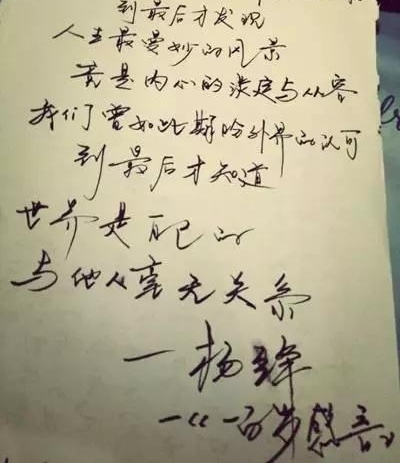 到最后才发现
人生最曼妙的风景
竟是内心的淡定与从容
我们曾如此期盼外界的认可
到最后才知道
世界是自己的
与他人毫无关系
一杨绛
一百岁感言